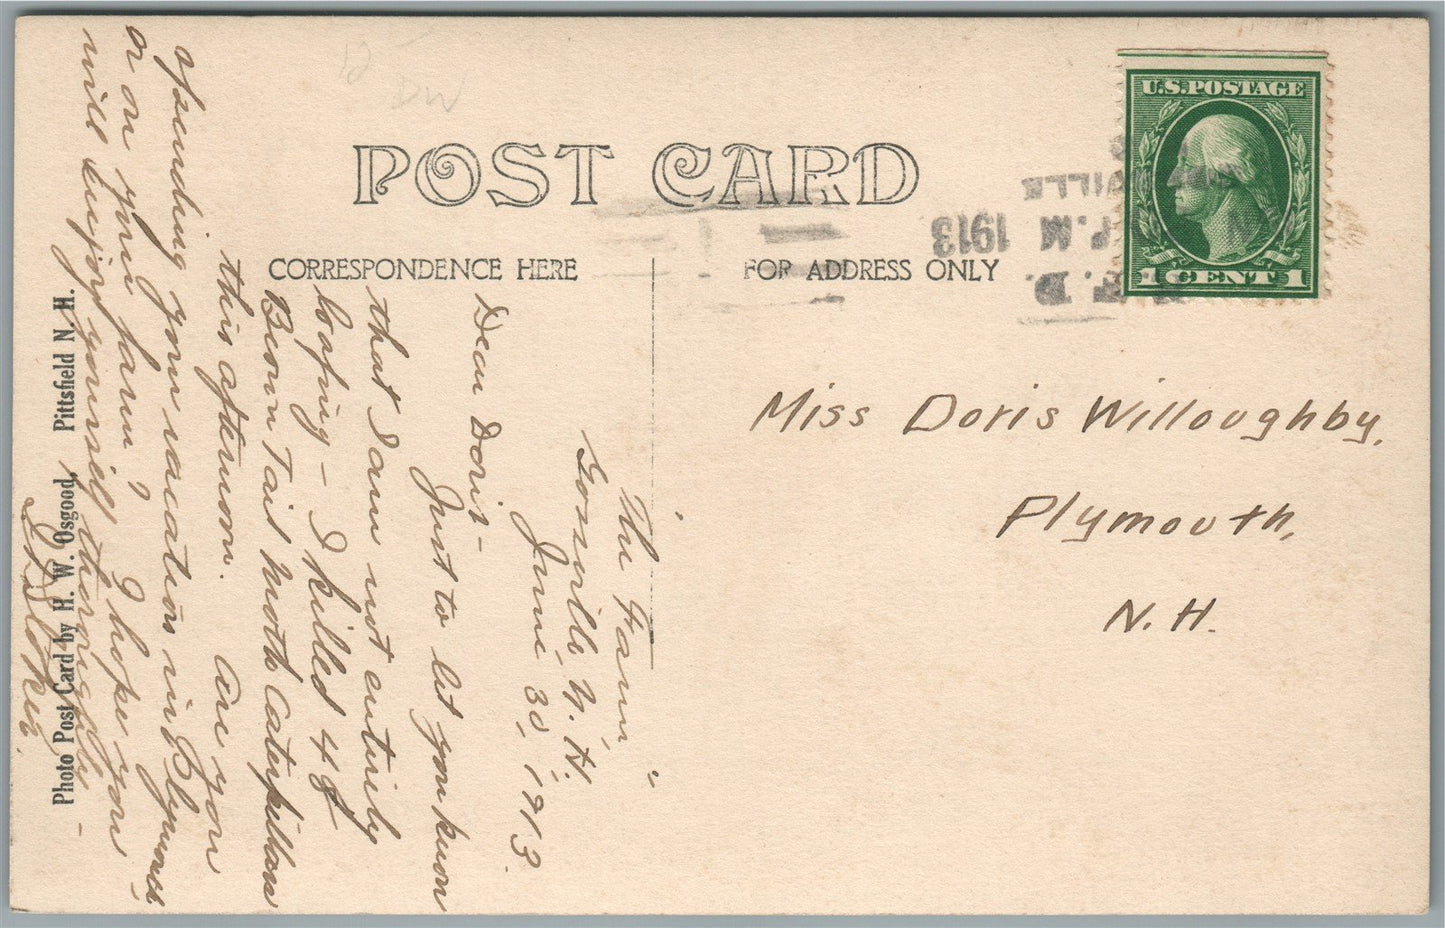 POST CARD
CORRESPONDENCE HERE
FOR ADDRESS ONLY
U.S. POSTAGE
1 CENT 1
VILLE
P.M
1913
F. D.
Miss Doris Willoughby,
Plymouth,
N. H.
"The Farm,"
N. H.
June 30, 1913.
Dear Doris-
Just to let you know
that I am not entirely
loafing - I killed 48
Brown Tail moth Caterpillars
this afternoon. Are you
spending your vacation in Plymouth
or on your farm? I hope you
will enjoy yourself thoroughly -
Photo Post Card by H. W. Osgood, Pittsfield N. H.